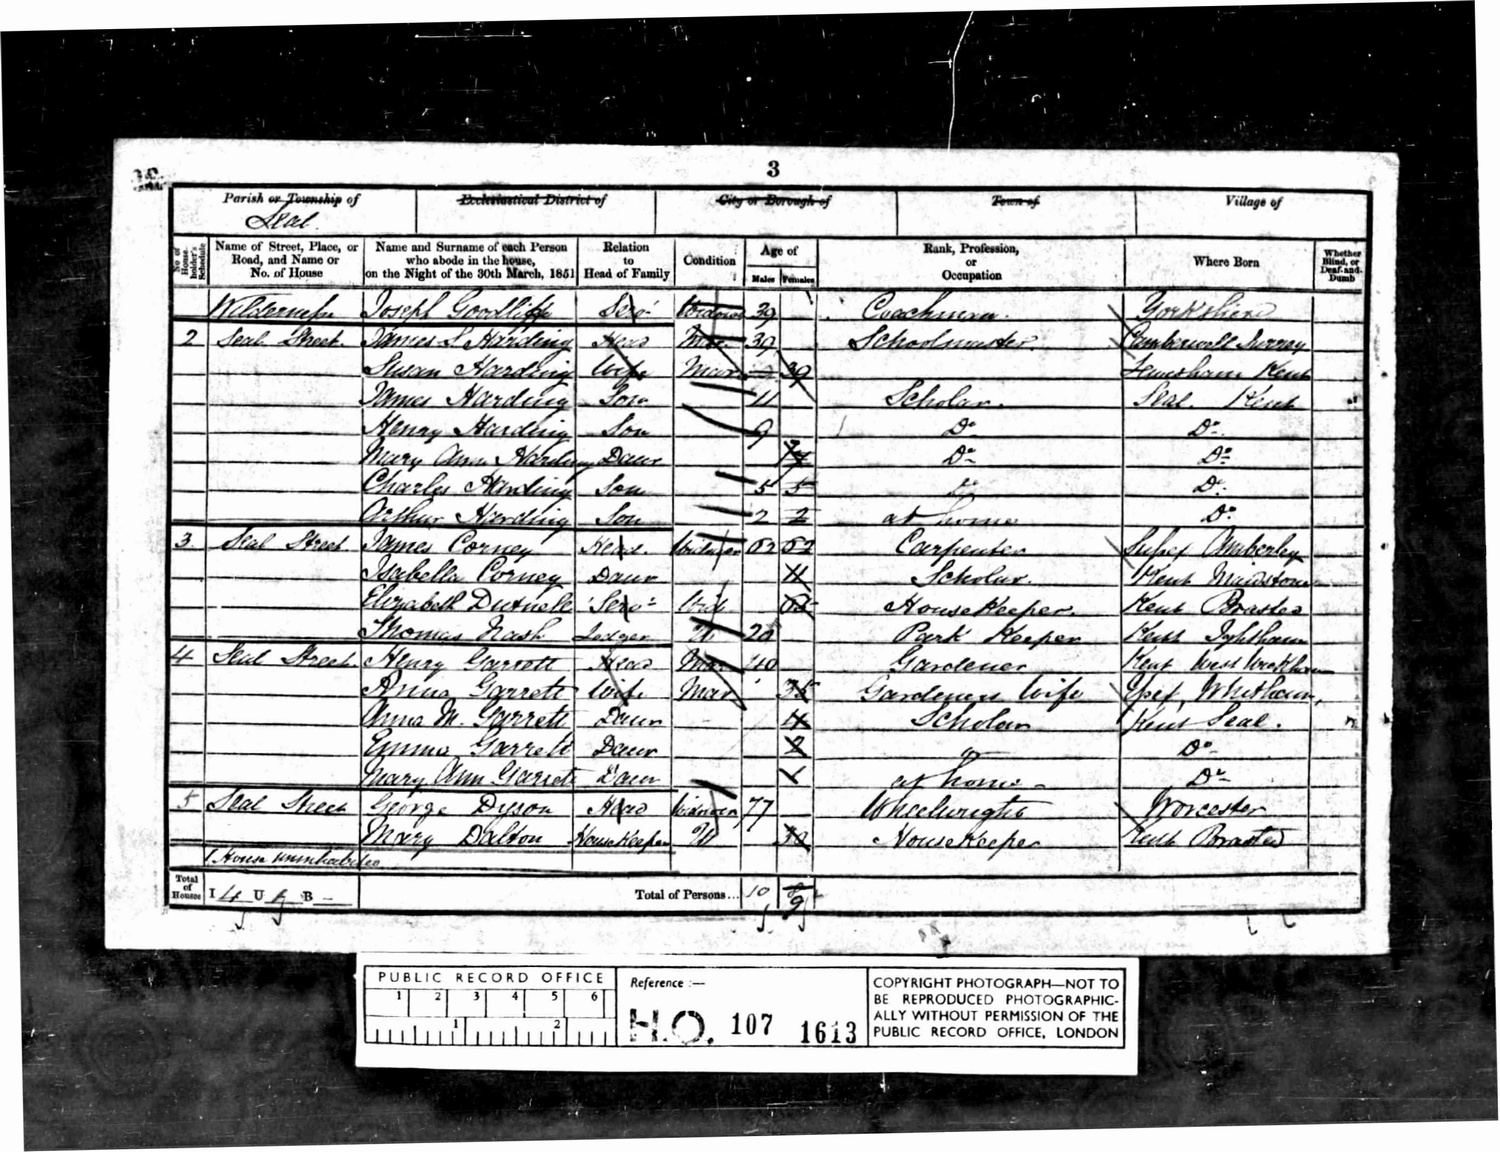 3
Parish or Township of Ecclesiastical District of City or Borough of Town of Village of
Seal
No. of Householder's Schedule Name of Street, Place, or Road, and Name or No. of House Name and Surname of each Person who abode in the house, on the Night of the 30th March, 1851 Relation to Head of Family Condition Age of Males Females Rank, Profession, or Occupation Where Born Whether Blind, or Deaf-and-Dumb
Wilderness Joseph Goodliffe Serv Widower 39 Coachman Yorkshire
2 Seal Street James S Harding Head Mar 39 Schoolmaster Camberwell Surrey
Susan Harding Wife Mar 39 Lewisham Kent
James Harding Son 11 Scholar Seal Kent
Henry Harding Son 9 Do Do
Mary Ann Harding Daur 7 Do Do
Charles Harding Son 5 5 Do Do
Arthur Harding Son 2 2 at home Do
3 Seal Street James Corney Head Widower 62 62 Carpenter Amberley
Isabella Corney Daur 11 Scholar Kent Maidstone
Elizabeth Dutnell Serv Wid HouseKeeper Kent Brasted
Thomas Nash Lodger U 20 Park Keeper Kent Ightham
4 Seal Street Henry Garrett Head Mar 40 Gardener Kent West
Anna Garrett Wife Mar 35 Gardeners Wife
Anna M. Garrett Daur 4 Scholar Kent Seal
Emma Garrett Daur 2 Do
Mary Ann Garrett Daur 1 at home Do
5 Seal Street George Dyson Head Widower 77 Wheelwright Worcester
Mary Dalton HouseKeeper U HouseKeeper Kent Brasted
1 House uninhabited
Total of Houses I 4 U B - Total of Persons... 10 9
PUBLIC RECORD OFFICE
1 2 3 4 5 6
1 2
Reference :—
H.O. 107 1613
COPYRIGHT PHOTOGRAPH—NOT TO
BE REPRODUCED PHOTOGRAPHIC-
ALLY WITHOUT PERMISSION OF THE
PUBLIC RECORD OFFICE, LONDON